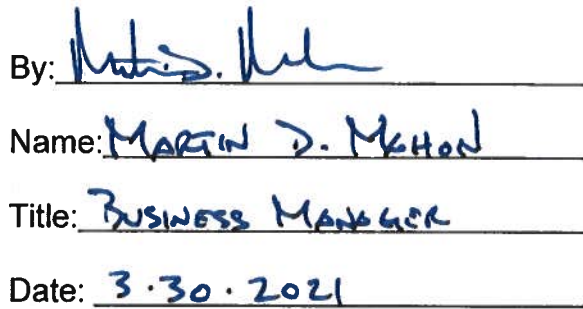 By:
Name: MARTIN D. McHON
Title: BUSINESS MANAGER
Date: 3.30.2021